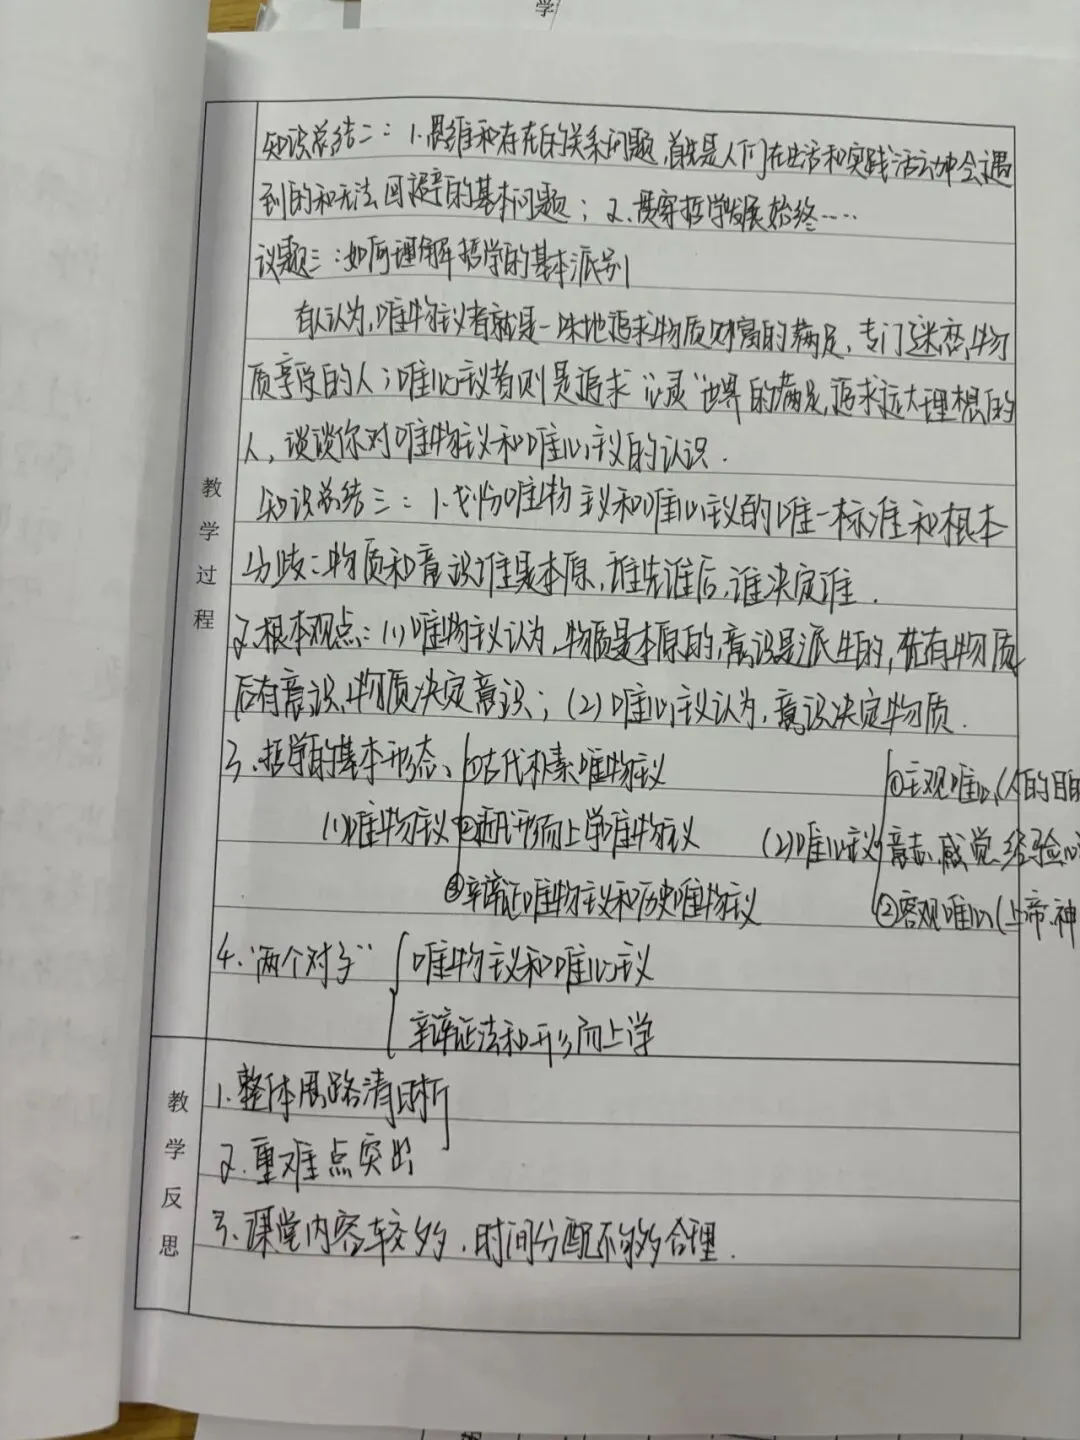 学
知识总结二：1.思维和存在的关系问题，首先是人们在生活和实践活动中会遇
到的和无法回避的基本问题；2.贯穿哲学发展始终……
议题三：如何理解哲学的基本派别
有人认为，唯物主义者就是一味地追求物质财富的满足，专门迷恋物
质享受的人；唯心主义者则是追求“心灵”世界的满足，追求远大理想的
人，谈谈你对唯物主义和唯心主义的认识．
知识总结三：1.划分唯物主义和唯心主义的唯一标准和根本
分歧：物质和意识谁是本原，谁先谁后，谁决定谁．
2.根本观点：(1)唯物主义认为，物质是本原的，意识是派生的，先有物质
后有意识，物质决定意识；(2)唯心主义认为，意识决定物质．
3.哲学的基本形态、①古代朴素唯物主义
①主观唯心(人的目的
(1)唯物主义 ②近代形而上学唯物主义 (2)唯心主义 意志、感觉、经验、心
③辩证唯物主义和历史唯物主义 ②客观唯心(上帝、神
4.“两个对子” 唯物主义和唯心主义
辩证法和形而上学
教学过程
1.整体思路清晰
2.重难点突出
3.课堂内容较多，时间分配不够合理．
教学反思